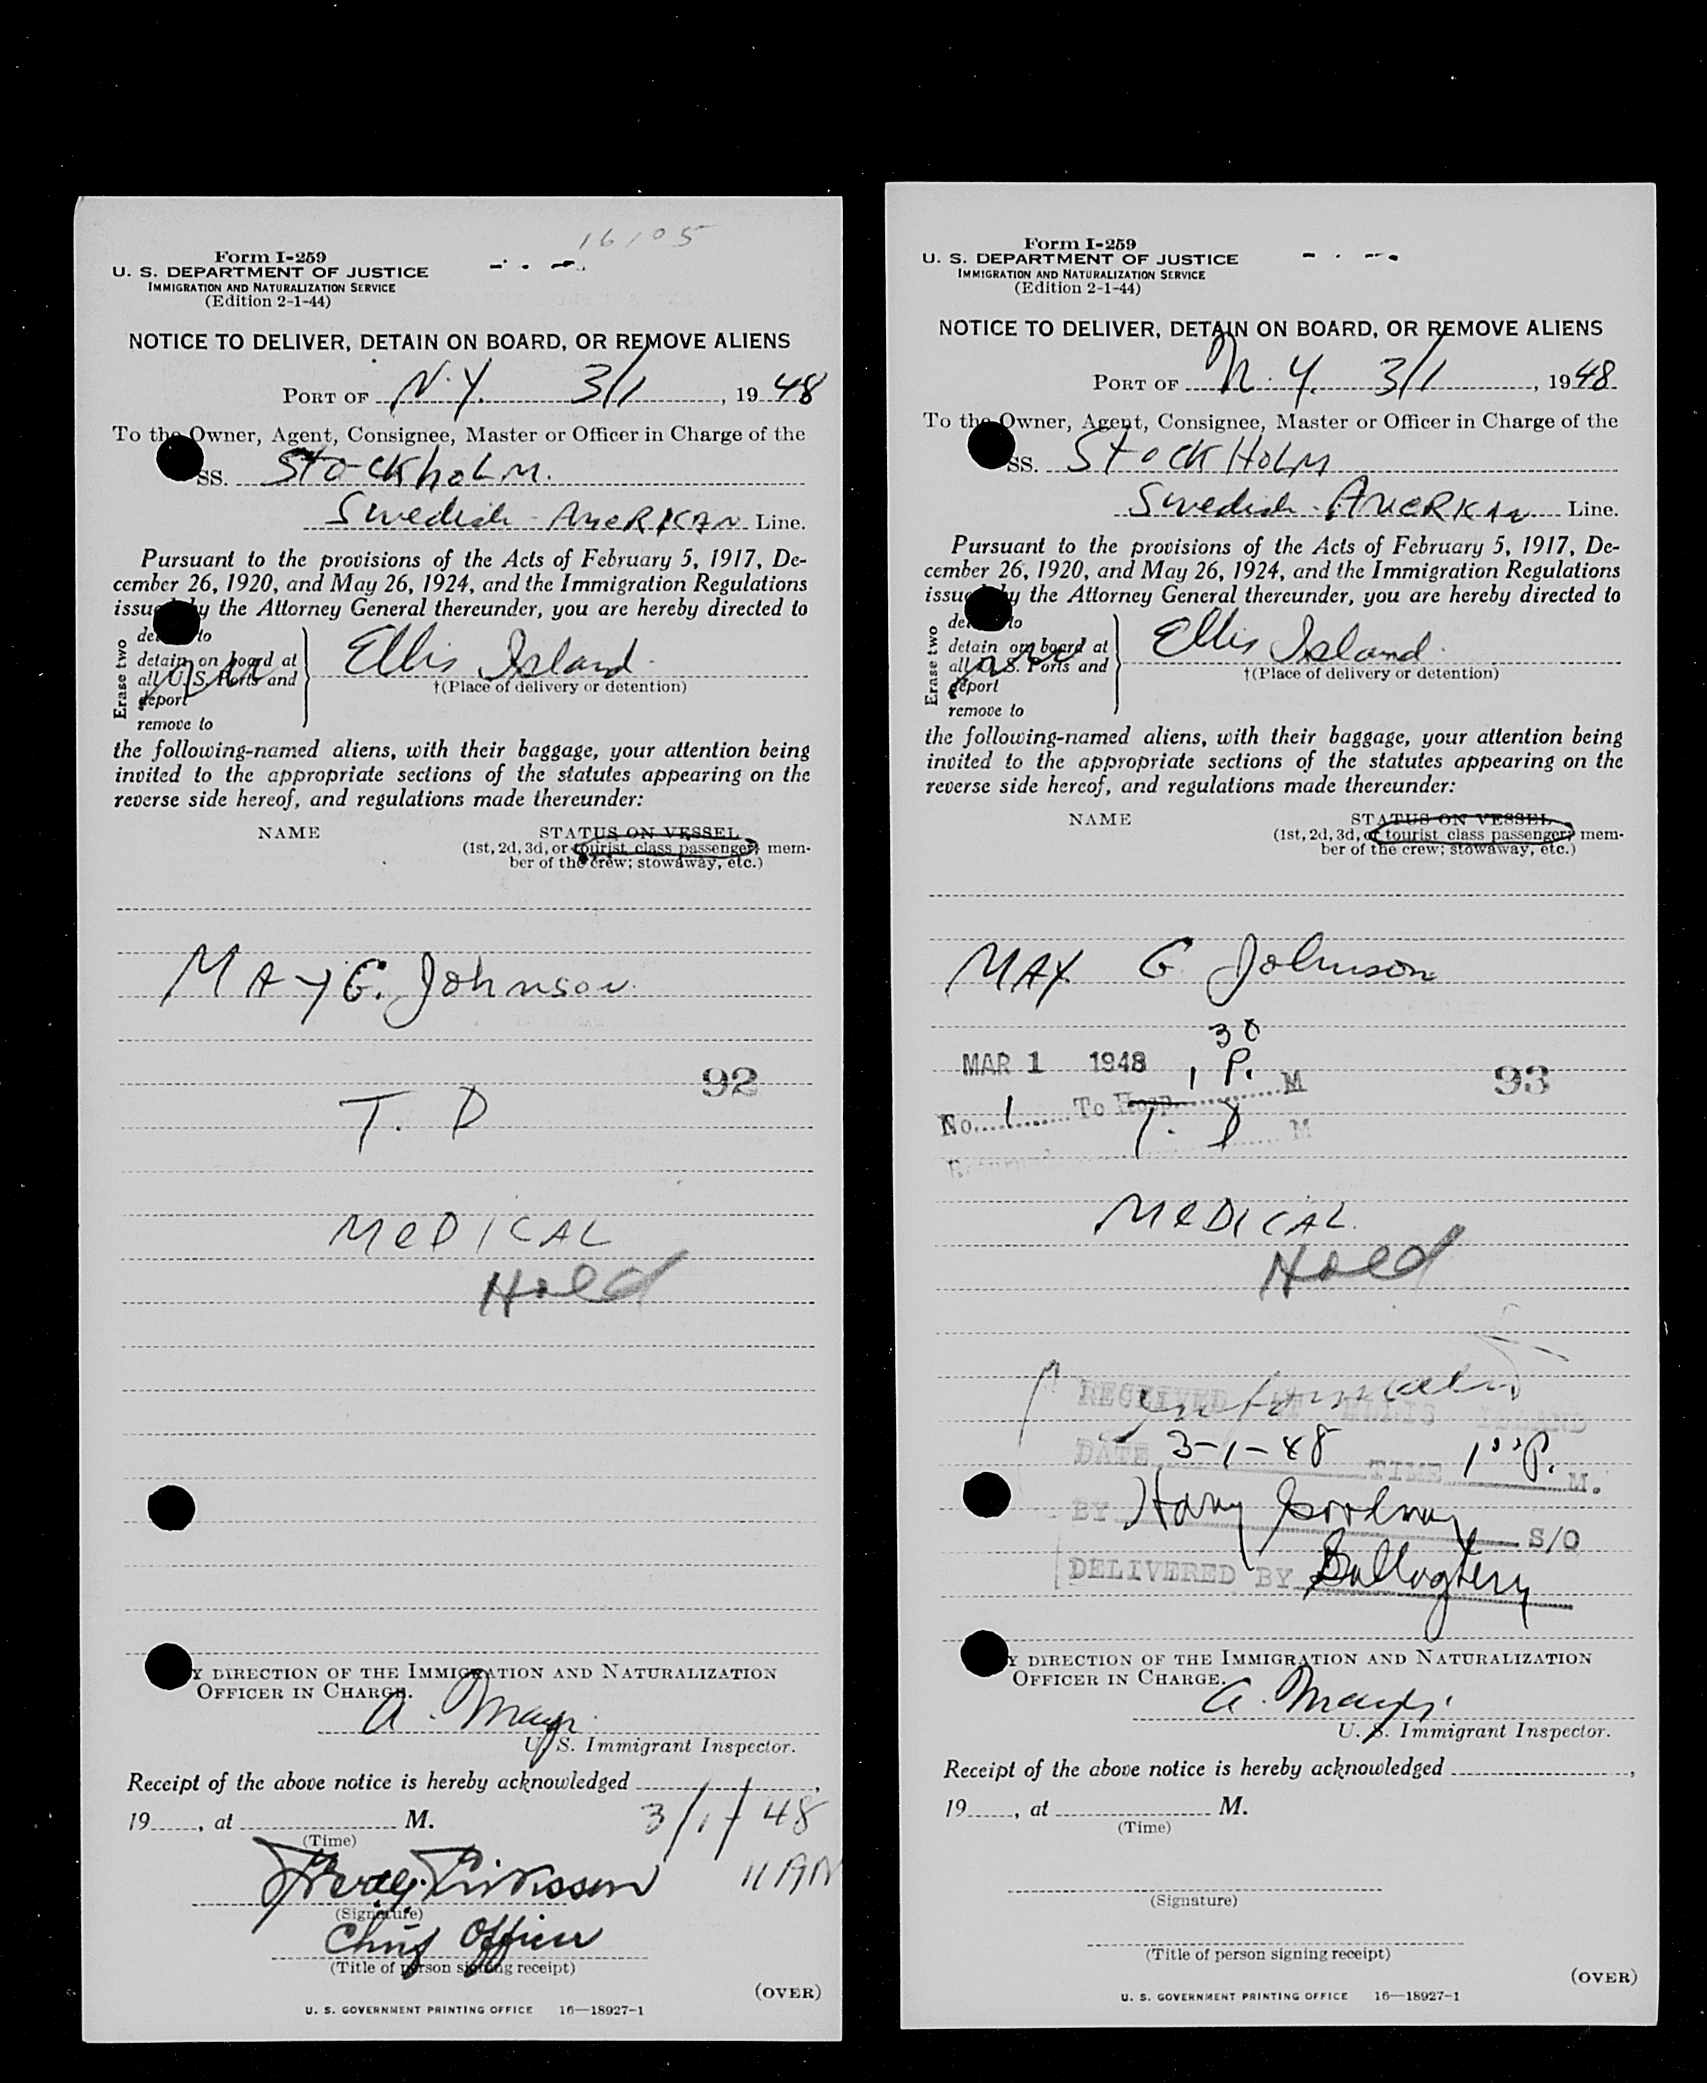 16105
Form I-259
U. S. DEPARTMENT OF JUSTICE
IMMIGRATION AND NATURALIZATION SERVICE
(Edition 2-1-44)
NOTICE TO DELIVER, DETAIN ON BOARD, OR REMOVE ALIENS
PORT OF N.Y. 3/1, 1948
To the Owner, Agent, Consignee, Master or Officer in Charge of the
SS. Stockholm.
Swedish-American Line.
Pursuant to the provisions of the Acts of February 5, 1917, De-
cember 26, 1920, and May 26, 1924, and the Immigration Regulations
issued by the Attorney General thereunder, you are hereby directed to
Erase two
to
detain on board at
all U. S. Ports and
deport
remove to
Ellis Island.
†(Place of delivery or detention)
the following-named aliens, with their baggage, your attention being
invited to the appropriate sections of the statutes appearing on the
reverse side hereof, and regulations made thereunder:
NAME
STATUS ON VESSEL
(1st, 2d, 3d, or tourist class passenger; mem-
ber of the crew; stowaway, etc.)
MAY G. Johnson
92
T. D
MeDICAL
Hold
BY DIRECTION OF THE IMMIGRATION AND NATURALIZATION
OFFICER IN CHARGE.
A.
U. S. Immigrant Inspector.
Receipt of the above notice is hereby acknowledged
19, at M.
3/1/48
(Time)
11 AM
(Signature)
Chief Officer
(Title of person signing receipt)
(OVER)
U. S. GOVERNMENT PRINTING OFFICE 16—18927-1
Form I-259
U. S. DEPARTMENT OF JUSTICE
IMMIGRATION AND NATURALIZATION SERVICE
(Edition 2-1-44)
NOTICE TO DELIVER, DETAIN ON BOARD, OR REMOVE ALIENS
PORT OF N.Y. 3/1, 1948
To the Owner, Agent, Consignee, Master or Officer in Charge of the
SS. StockHolm
Swedish-American Line.
Pursuant to the provisions of the Acts of February 5, 1917, De-
cember 26, 1920, and May 26, 1924, and the Immigration Regulations
issued by the Attorney General thereunder, you are hereby directed to
Erase two
to
detain on board at
all U. S. Ports and
deport
remove to
Ellis Island.
†(Place of delivery or detention)
the following-named aliens, with their baggage, your attention being
invited to the appropriate sections of the statutes appearing on the
reverse side hereof, and regulations made thereunder:
NAME
STATUS ON VESSEL
(1st, 2d, 3d, or tourist class passenger; mem-
ber of the crew; stowaway, etc.)
MAY. G Johnson
MAR 1 1948 1 30 P. M
93
No. 1 To Hosp. M
T. D
MeDICAL.
Hold
RECEIVED AT ELLIS ISLAND
DATE 3-1-48 TIME 1 00 P. M.
BY Harry S/O
DELIVERED BY
BY DIRECTION OF THE IMMIGRATION AND NATURALIZATION
OFFICER IN CHARGE.
A.
U. S. Immigrant Inspector.
Receipt of the above notice is hereby acknowledged,
19, at M.
(Time)
(Signature)
(Title of person signing receipt)
(OVER)
U. S. GOVERNMENT PRINTING OFFICE 16—18927-1